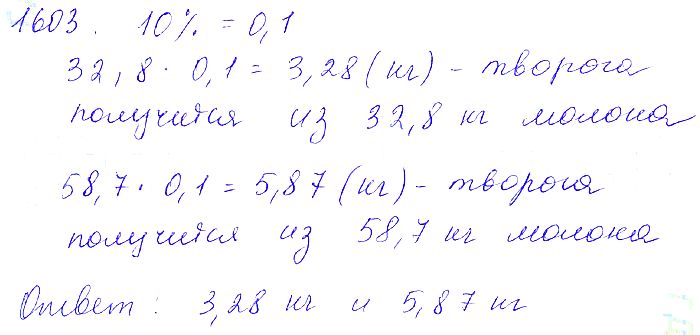 1603. 10% = 0,1
32,8 · 0,1 = 3,28 (кг) - творога
получится из 32,8 кг молока
58,7 · 0,1 = 5,87 (кг) - творога
получится из 58,7 кг молока
Ответ: 3,28 кг и 5,87 кг